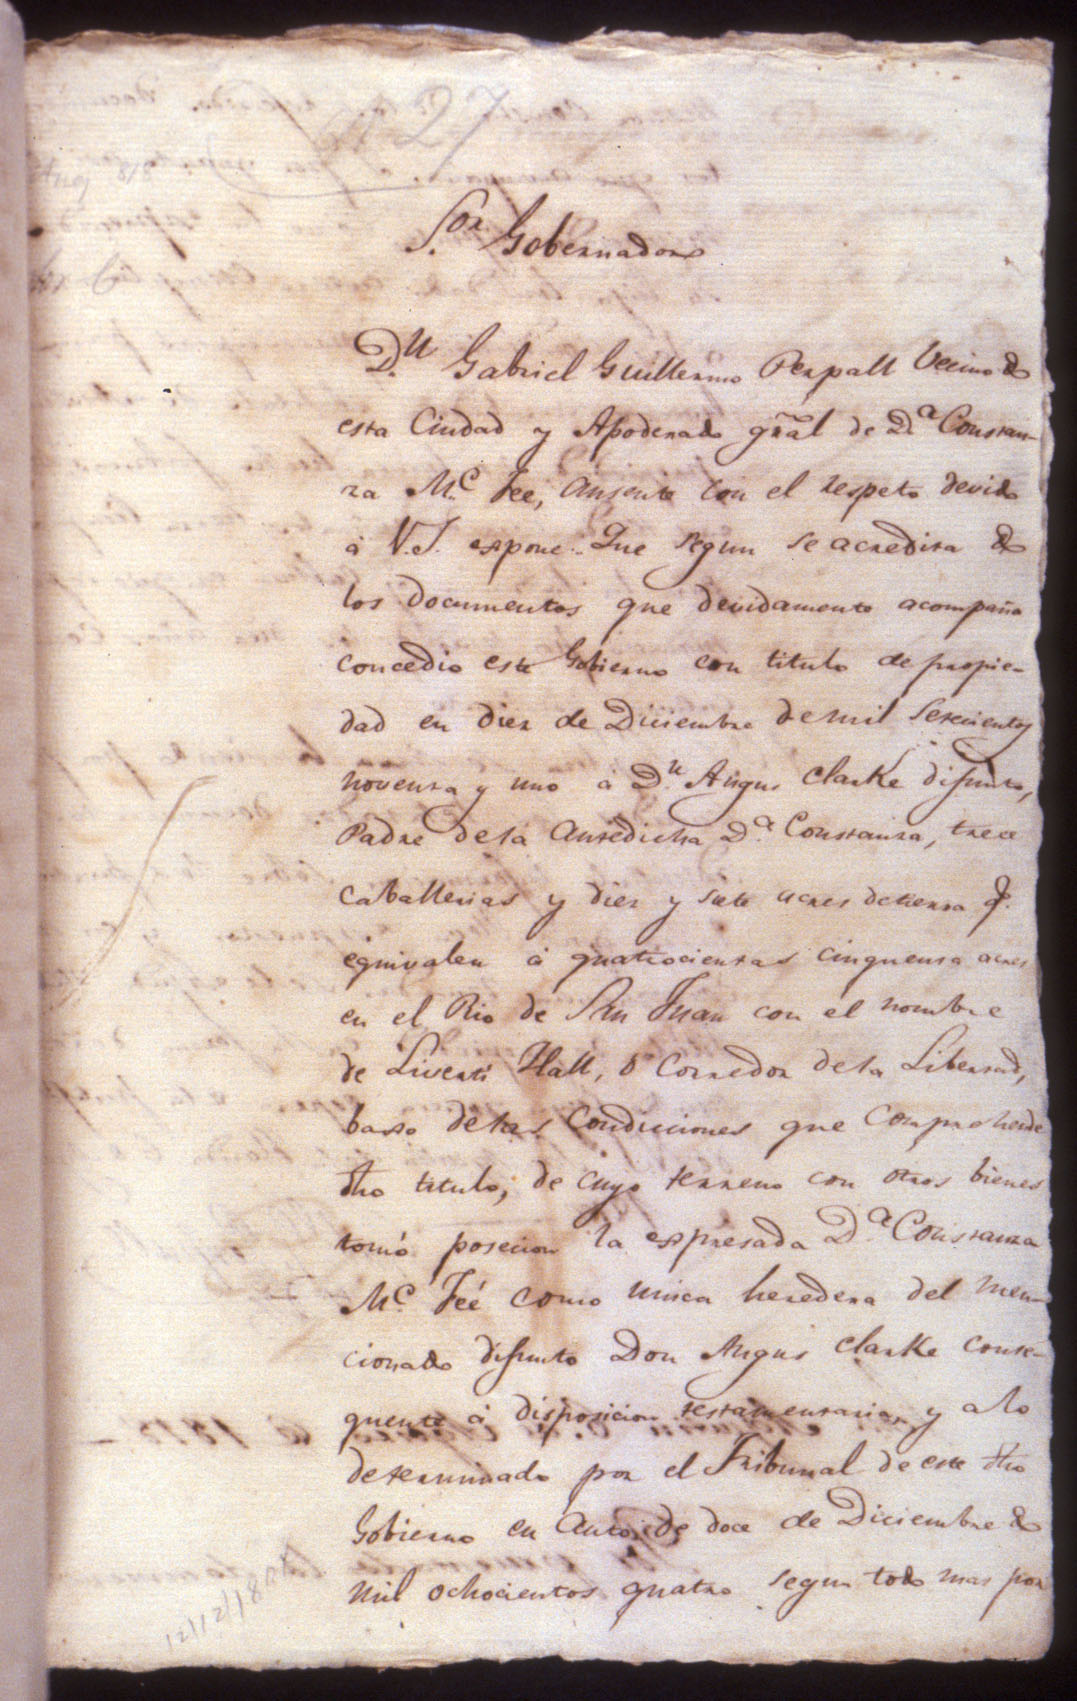 27
818
6
S.or Gobernador
D.n Gabriel Guillermo Perpall Vecino de
esta Ciudad y Apoderado gral de D.a Constan-
za M.c Fee, ausente con el respeto devido
á V.S. expone: Que segun se acredita de
los documentos que devidamente acompaña
concedio este Gobierno con titulo de propie-
dad en diez de Diciembre de mil Setecientos
noventa y uno a D.n Angus Clarke difunto,
Padre de la antedicha D.a Constanza, trece
caballerias y diez y siete acres de tierra q.
equivalen á quatrocientas cinquenta acres
en el Rio de San Juan con el nombre
de Liverti Hall, ó Corredor de la Libertad,
baxo de las condicciones que Comprehende
dho titulo, de cuyo terreno con otros bienes
tomó posecion la expresada D.a Constanza
M.c Feé como unica heredera del men-
cionado difunto Don Angus Clarke conse-
quente á disposicion testamentaria, y a lo
determinado por el Tribunal de este dho
Gobierno en autos de doce de Diciembre de
mil ochocientos quatro segun todo mas por
12/12/1804